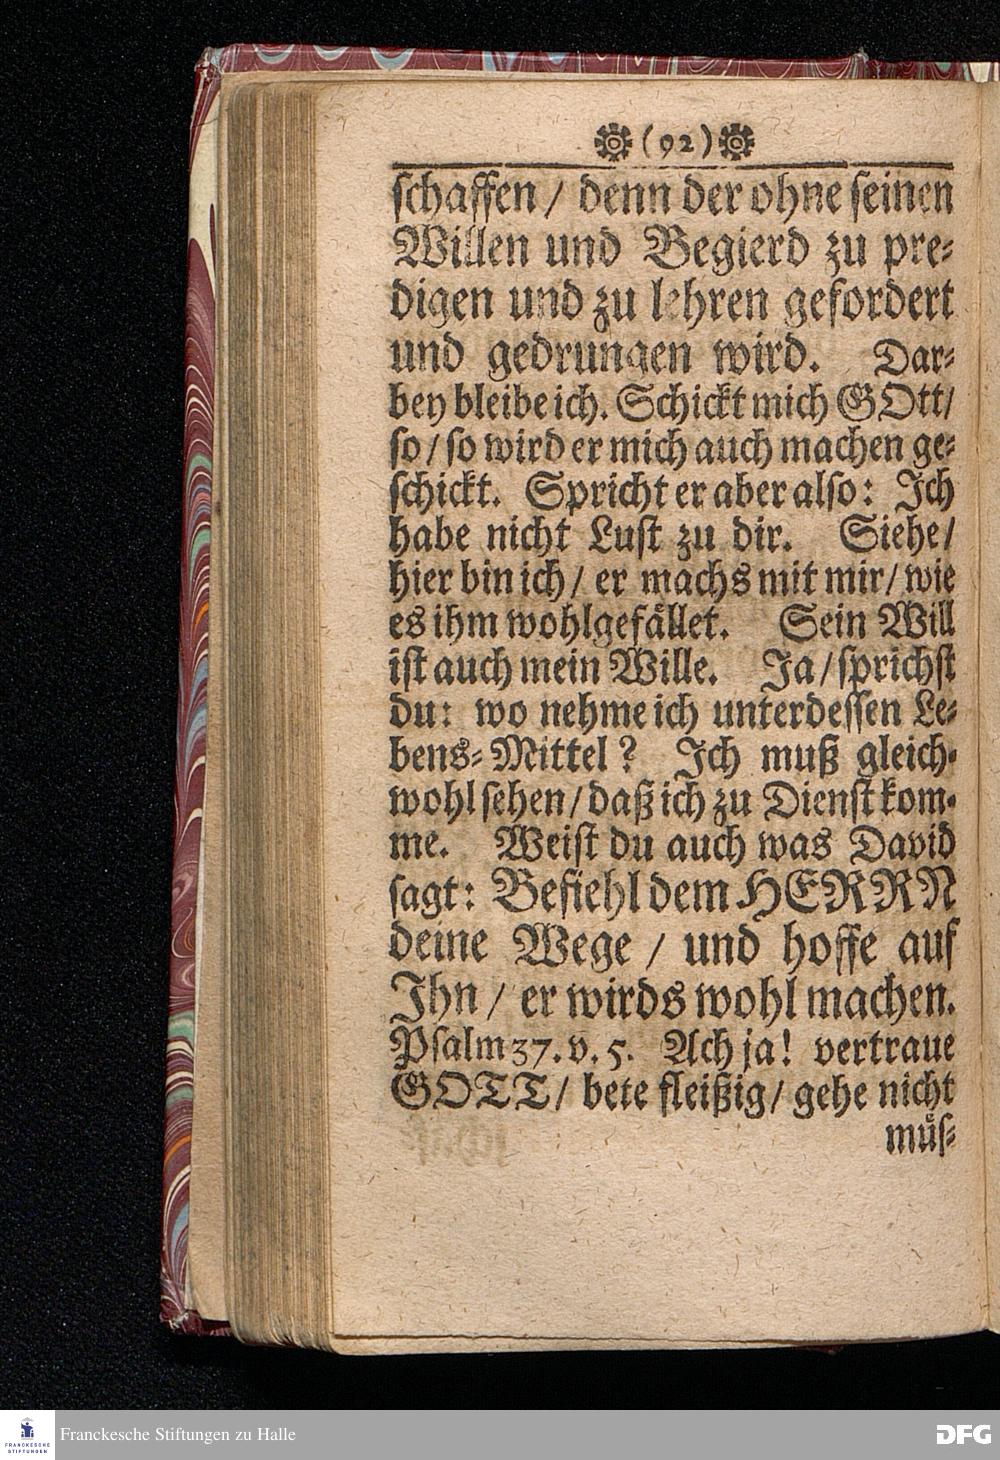 (92)
schaffen / denn der ohne seinen
Willen und Begierd zu pre-
digen und zu lehren gefordert
und gedrungen wird. Dar-
bey bleibe ich. Schickt mich GOtt/
so / so wird er mich auch machen ge-
schickt. Spricht er aber also: Ich
habe nicht Lust zu dir. Siehe/
hier bin ich / er machs mit mir / wie
es ihm wohlgefället. Sein Will
ist auch mein Wille. Ja / sprichst
du: wo nehme ich unterdessen Le-
bens-Mittel? Ich muß gleich-
wohl sehen / daß ich zu Dienst kom-
me. Weist du auch was David
sagt: Befiehl dem HERRN
deine Wege / und hoffe auf
Ihn / er wirds wohl machen.
Psalm 37. v. 5. Ach ja! vertraue
GOTT / bete fleißig / gehe nicht
müs-
FRANCKESCHE
STIFTUNGEN
Franckesche Stiftungen zu Halle
DFG